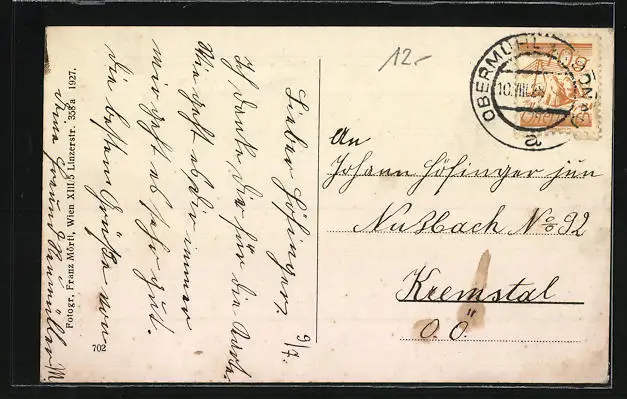 12.-
OBERMÜHL
10.VIII.
a
Lieber Höfinger,
9/7.
Ich danke dir für die Karte
Wie geht es dir immer
mir geht es sehr gut.
Die besten Grüße von
dein Freund
An
Johann Höfinger jun
Nußbach No 92
Kremstal
O.Ö.
Fotogr. Franz Mörtl, Wien XIII/5 Linzerstr. 358a 1927.
702